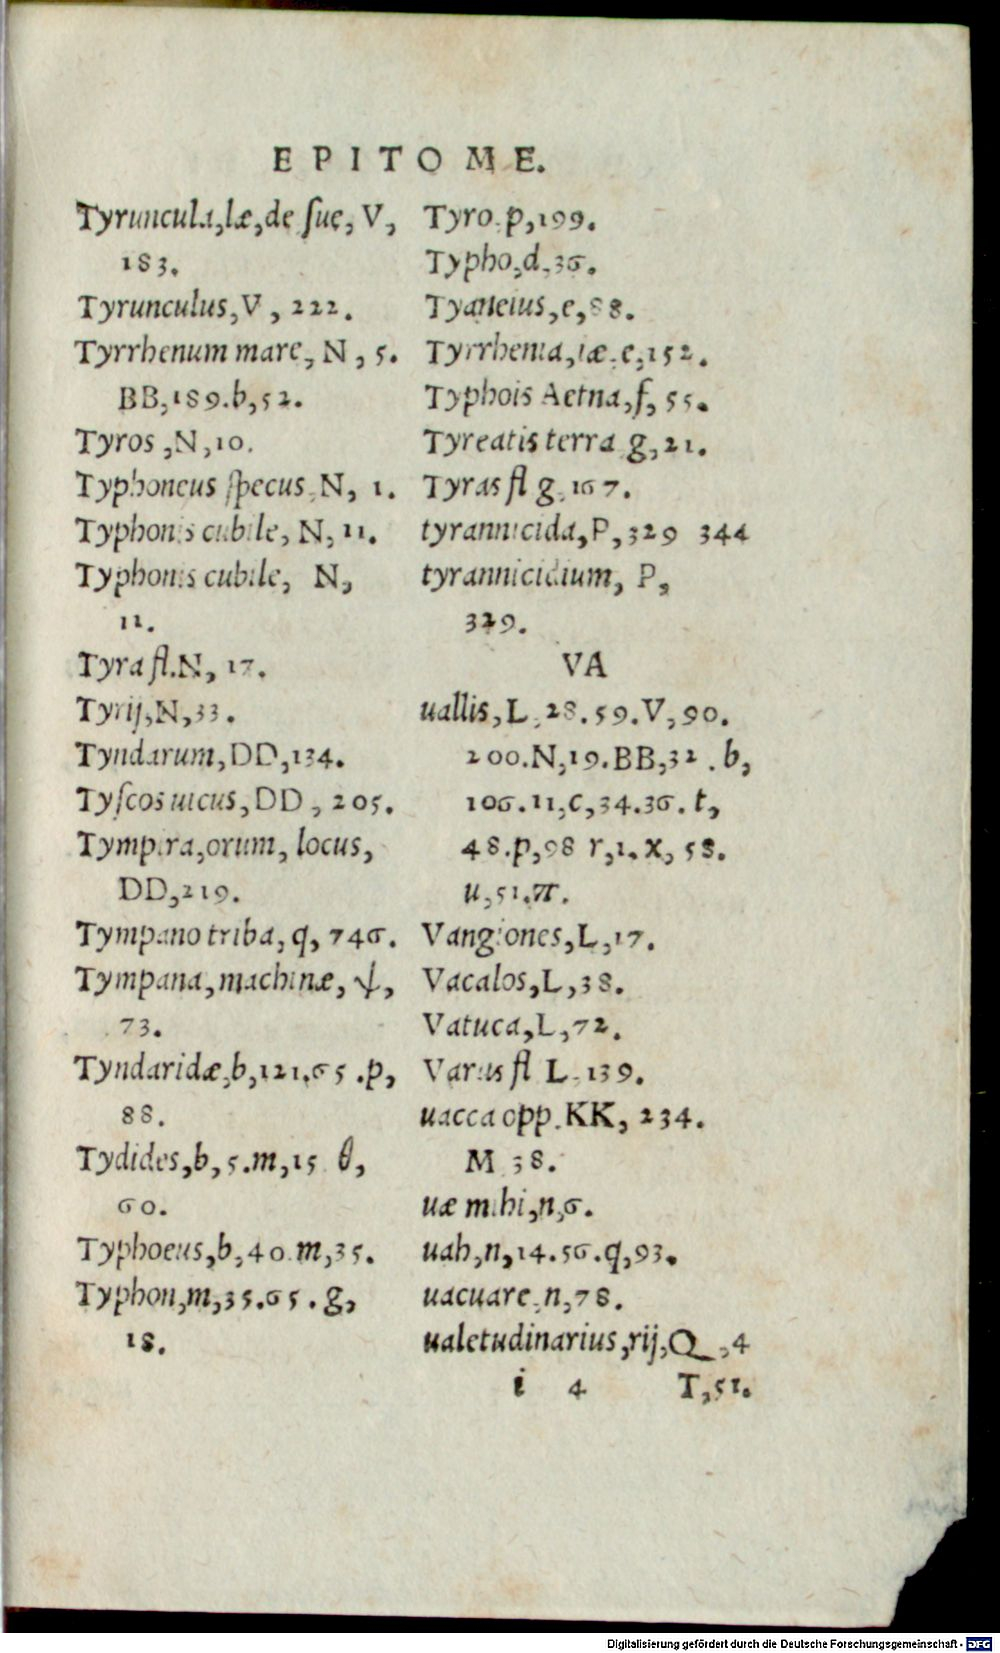 EPITOME.
Tyruncula,læ,de sue, V,
183.
Tyrunculus,V, 222.
Tyrrhenum mare, N, 5.
BB,189.b,52.
Tyros,N,10.
Typhoneus specus,N, 1.
Typhonis cubile, N, 11.
Typhonis cubile, N,
11.
Tyra fl.N, 17.
Tyrij,N,33.
Tyndarum,DD,134.
Tyscos uicus,DD, 205.
Tympira,orum, locus,
DD,219.
Tympano triba, q, 746.
Tympana,machinæ, ψ,
73.
Tyndaridæ,b,121.65.p,
88.
Tydides,b,5.m,15 θ,
60.
Typhoeus,b,40.m,35.
Typhon,m,35.65.g,
18.
Tyro.p,199.
Typho,d,36.
Tyaneius,e,88.
Tyrrhenia,iæ.e,152.
Typhois Aetna,f,55.
Tyreatis terra g,21.
Tyras fl g.167.
tyrannicida,P,329 344
tyrannicidium, P,
329.
VA
uallis,L.28.59.V,90.
200.N,19.BB,32.b,
106.11,c,34.36.t,
48.p,98 r,1.x,58.
u,51.π.
Vangiones,L,17.
Vacalos,L,38.
Vatuca,L,72.
Varus fl L.139.
uacca opp.KK, 234.
M 38.
uæ mihi,n,6.
uah,n,14.56.q,93.
uacuare,n,78.
ualetudinarius,rij,Q,4
i 4 T,51.
Digitalisierung gefördert durch die Deutsche Forschungsgemeinschaft - DFG